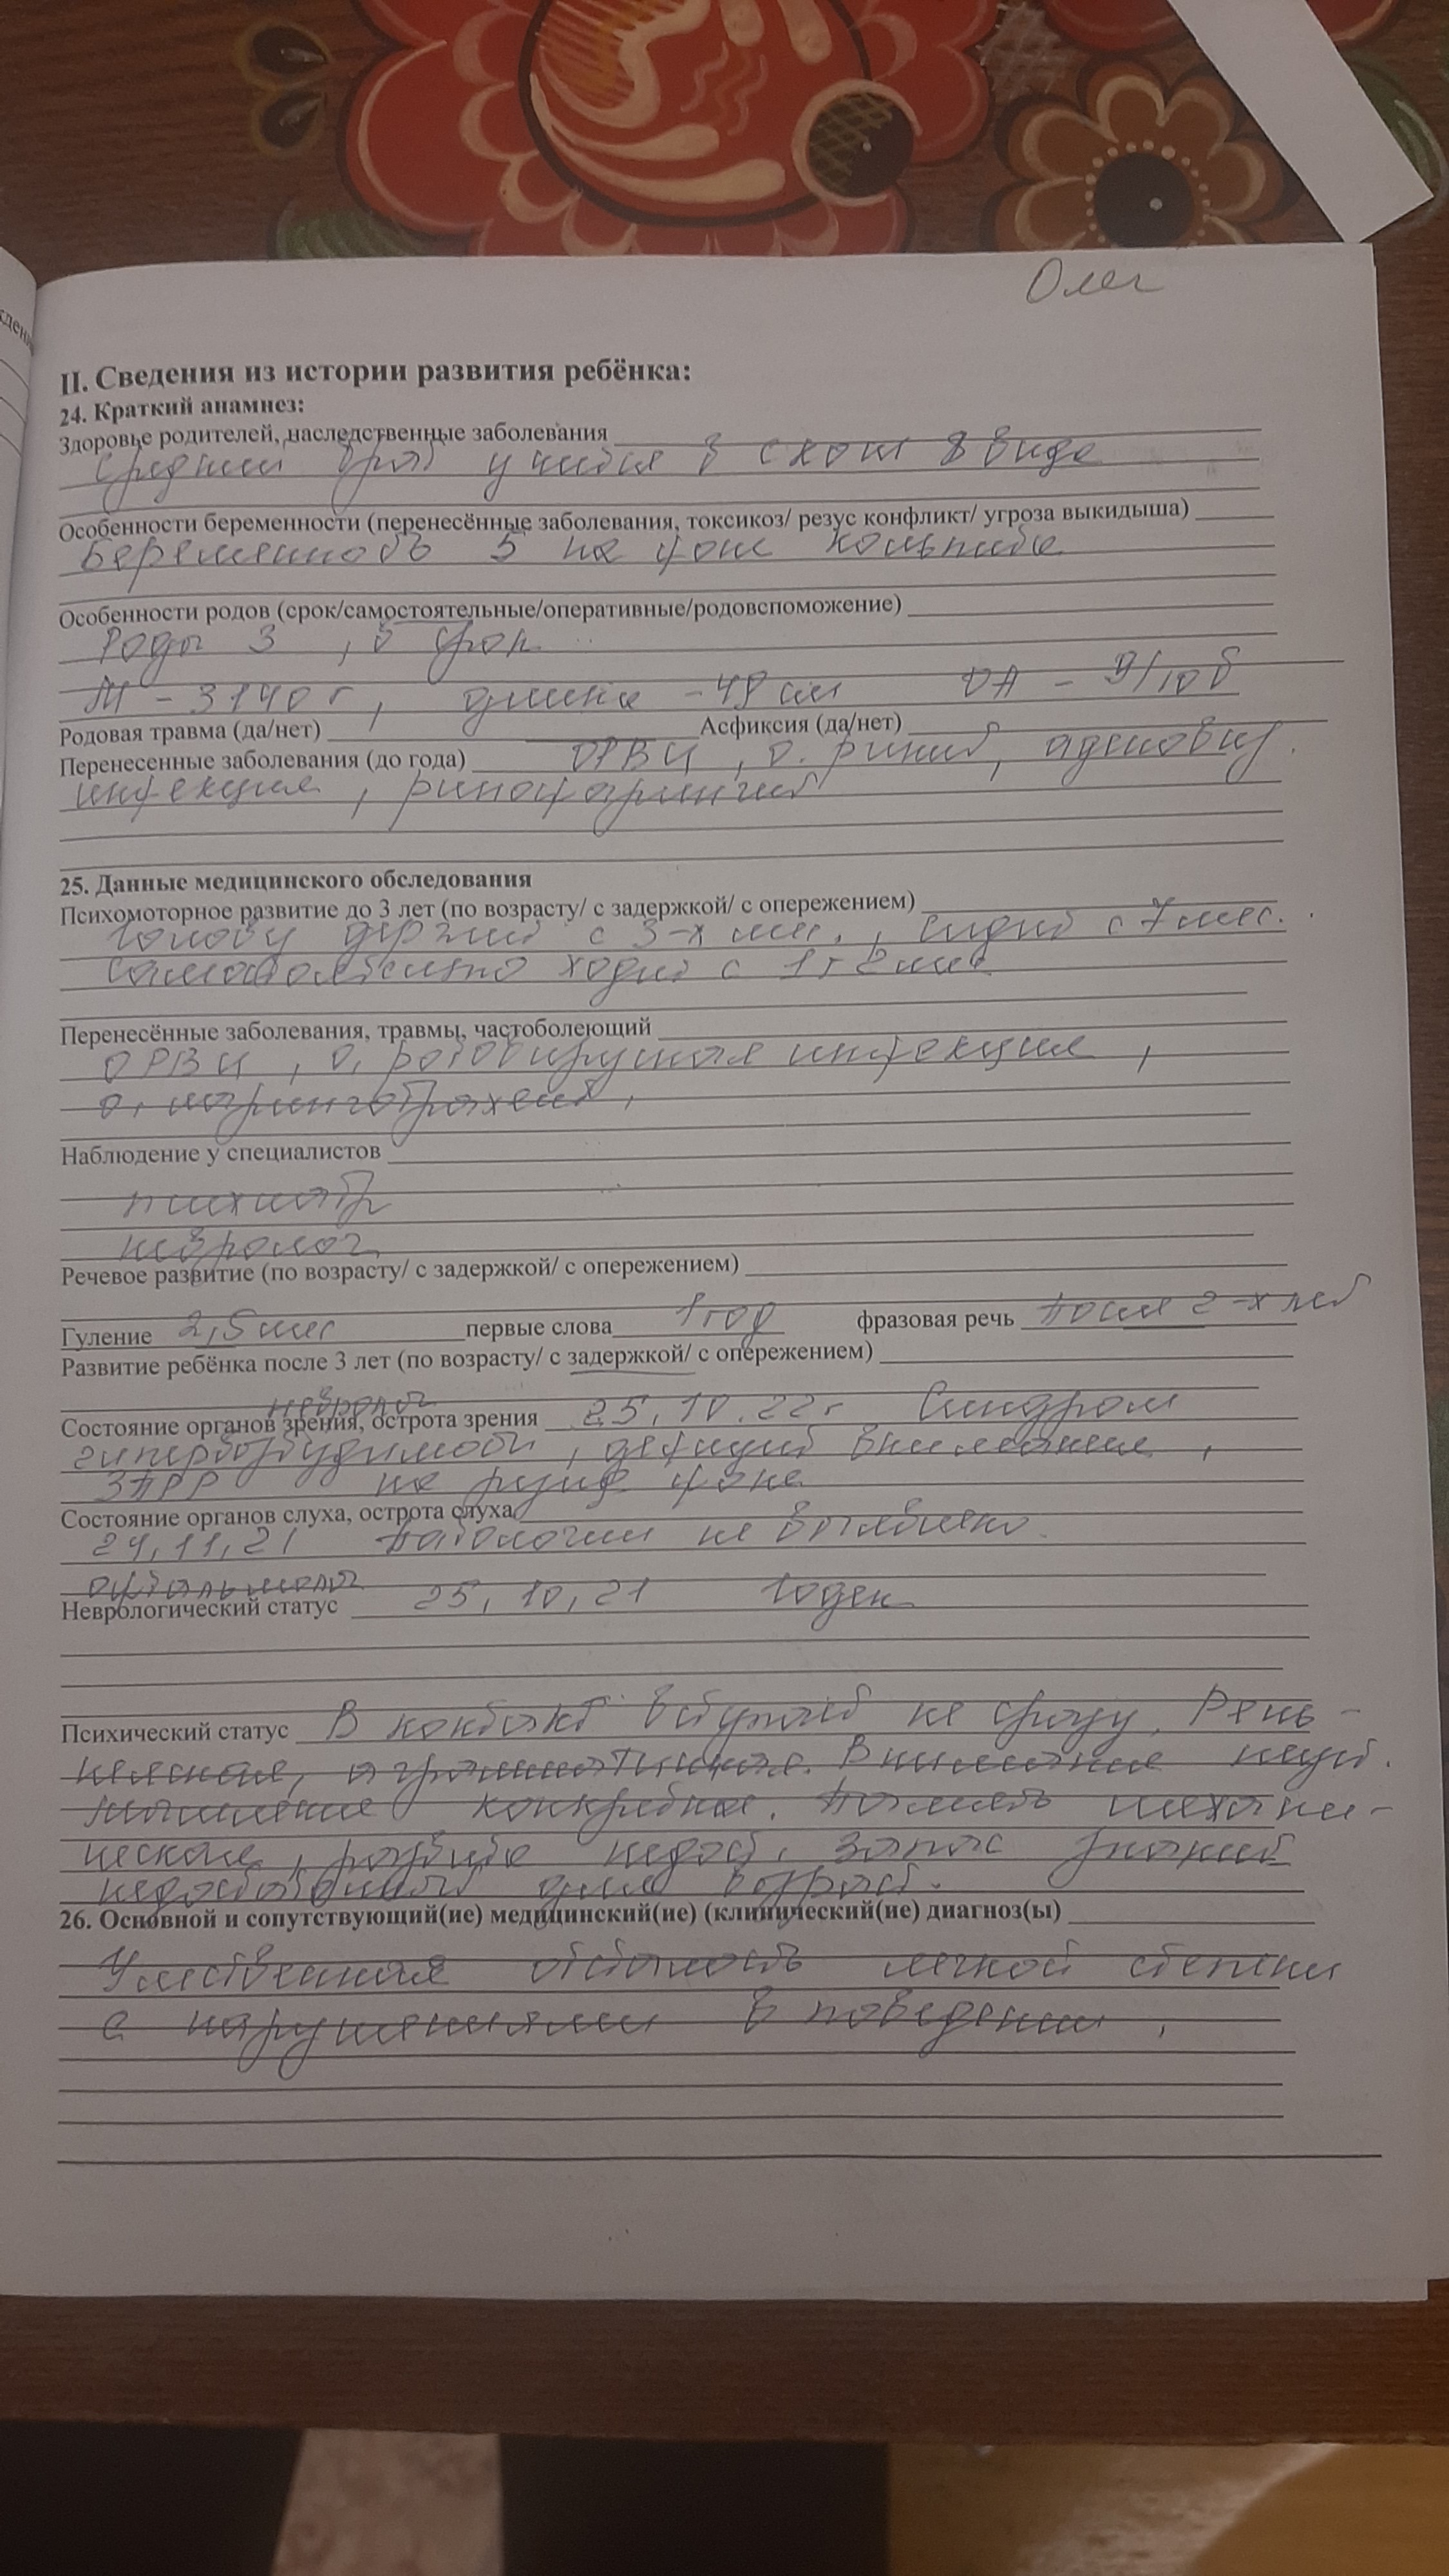 Олег
II. Сведения из истории развития ребёнка:
24. Краткий анамнез:
Здоровье родителей, наследственные заболевания
средний брат учится в скош 8 вида
Особенности беременности (перенесённые заболевания, токсикоз/ резус конфликт/ угроза выкидыша)
Беременность 5 на фоне кольпита
Особенности родов (срок/самостоятельные/оперативные/родовспоможение)
Роды 3, в срок
М - 3140 г, длина - 49 см ОА - 9/10 б
Родовая травма (да/нет) Асфиксия (да/нет)
Перенесенные заболевания (до года) ОРВИ, о. ринит, аденовир.
инфекция, ринофарингит
25. Данные медицинского обследования
Психомоторное развитие до 3 лет (по возрасту/ с задержкой/ с опережением)
голову держит с 3-х мес., сидит с 7 мес.
самостоятельно ходит с 1 г 2 мес
Перенесённые заболевания, травмы, частоболеющий
ОРВИ, о. ротовирусная инфекция,
о. ларинготрахеит,
Наблюдение у специалистов
психиатр
невролог
Речевое развитие (по возрасту/ с задержкой/ с опережением)
Гуление 2,5 мес первые слова 1 год фразовая речь после 2-х лет
Развитие ребёнка после 3 лет (по возрасту/ с задержкой/ с опережением)
невролог
Состояние органов зрения, острота зрения 25.10.22 г Синдром
гипервозбудимости, дефицит внимания,
ЗПРР на фоне
Состояние органов слуха, острота слуха
24.11.21 патологии не выявлено
офтальмолог
Неврологический статус 25.10.21 годен
Психический статус В контакт вступает не сразу. Речь -
неясная, аграмматичная. Внимание неуст.
мышление конкретное. Память механи-
ческая, развита недост. запас знаний
недостаточный для возраст.
26. Основной и сопутствующий(ие) медицинский(ие) (клинический(ие) диагноз(ы)
Умственная отсталость легкой степени
с нарушениями в поведении,